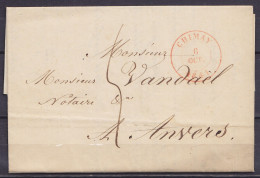 CHIMAY
6
OCT
Monsieur
Monsieur Vandaël
Notaire &a
5
A Anvers.